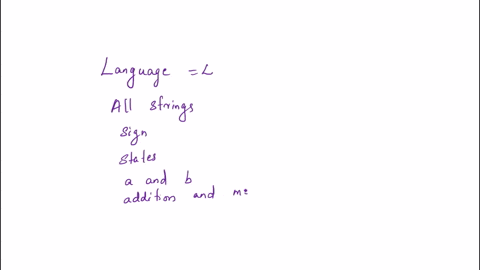 Language = L
All strings
Sign
States
a and b
addition and